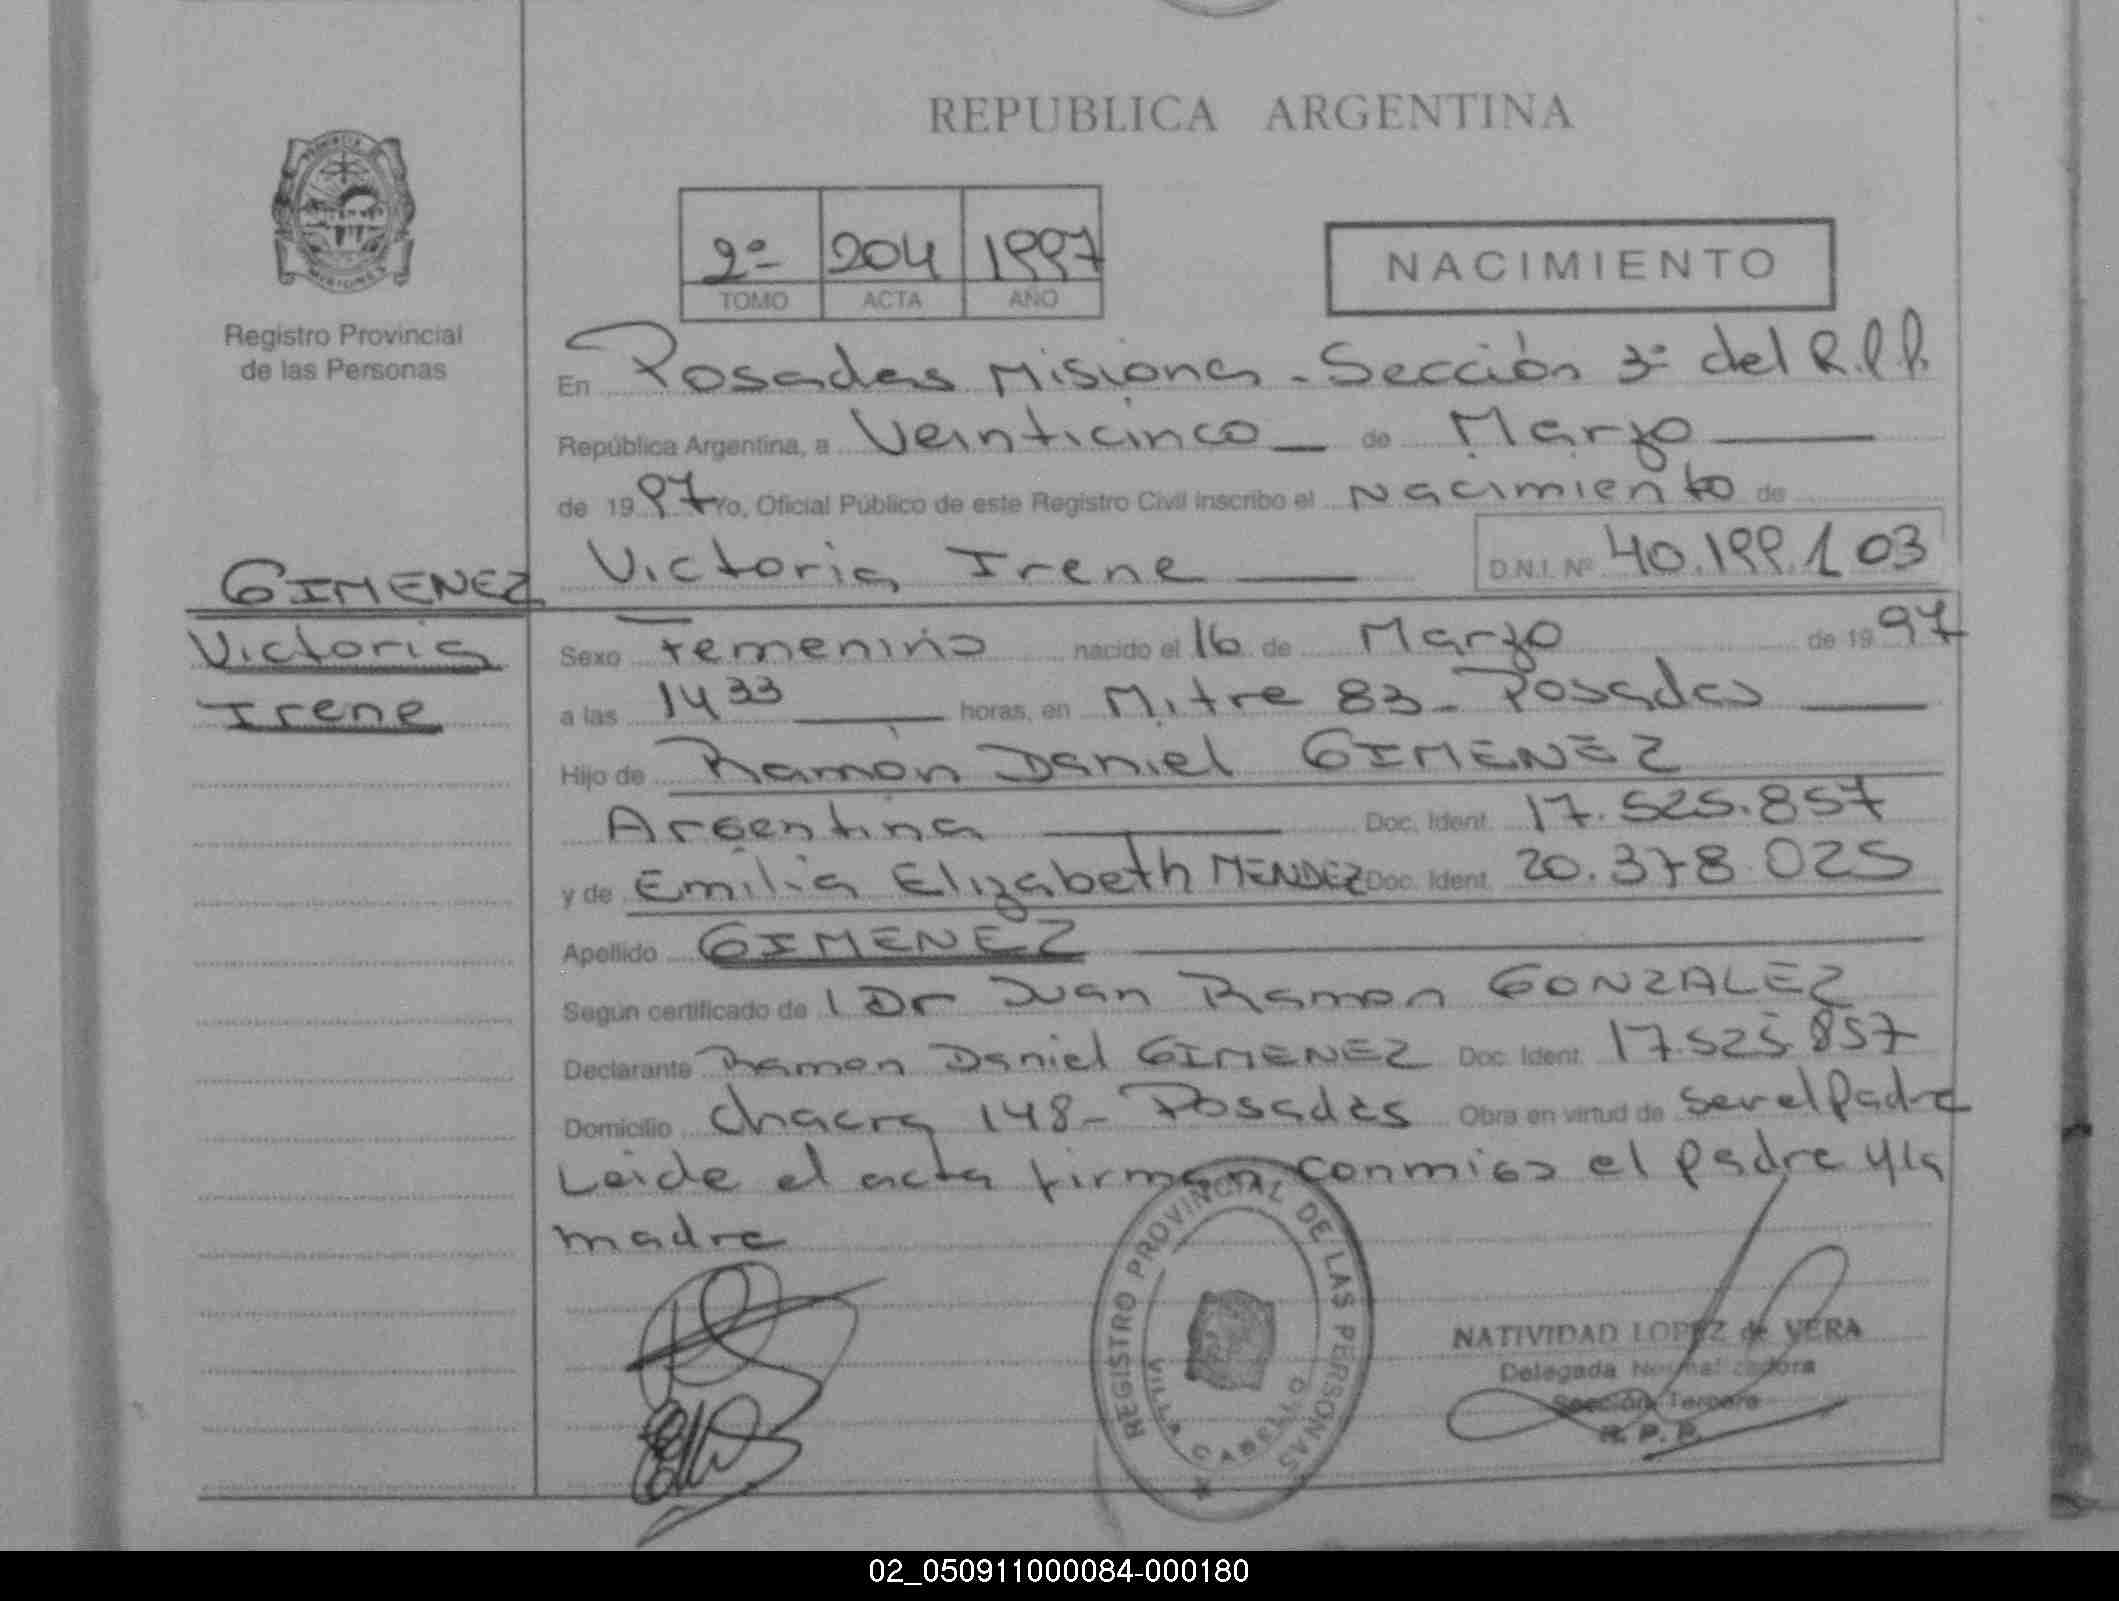 REPUBLICA ARGENTINA
2º 204 1997
TOMO ACTA AÑO
NACIMIENTO
Registro Provincial
de las Personas
En Posadas Misiones - Sección 3º del R.P.P.
República Argentina, a Veinticinco de Marzo
de 1997 Yo, Oficial Público de este Registro Civil inscribo el Nacimiento de
Victoria Irene D.N.I. Nº 40.199.103
GIMENEZ
Victoria
Irene
Sexo Femenino nacido el 16 de Marzo de 1997
a las 14 33 horas, en Mitre 83 - Posadas
Hijo de Ramón Daniel GIMENEZ
Argentina Doc. Ident. 17.525.857
y de Emilia Elizabeth MENDEZ Doc. Ident. 20.378.025
Apellido GIMENEZ
Según certificado de l Dr Juan Ramon GONZALEZ
Declarante Ramon Daniel GIMENEZ Doc. Ident. 17.525.857
Domicilio Chacra 148 - Posadas Obra en virtud de ser el padre
Leida el acta firman conmigo el padre y la
madre
REGISTRO PROVINCIAL DE LAS PERSONAS
VILLA CABELLO
NATIVIDAD LOPEZ de VERA
Delegada Normalizadora
Sección Tercera
R. P. P.
02_050911000084-000180